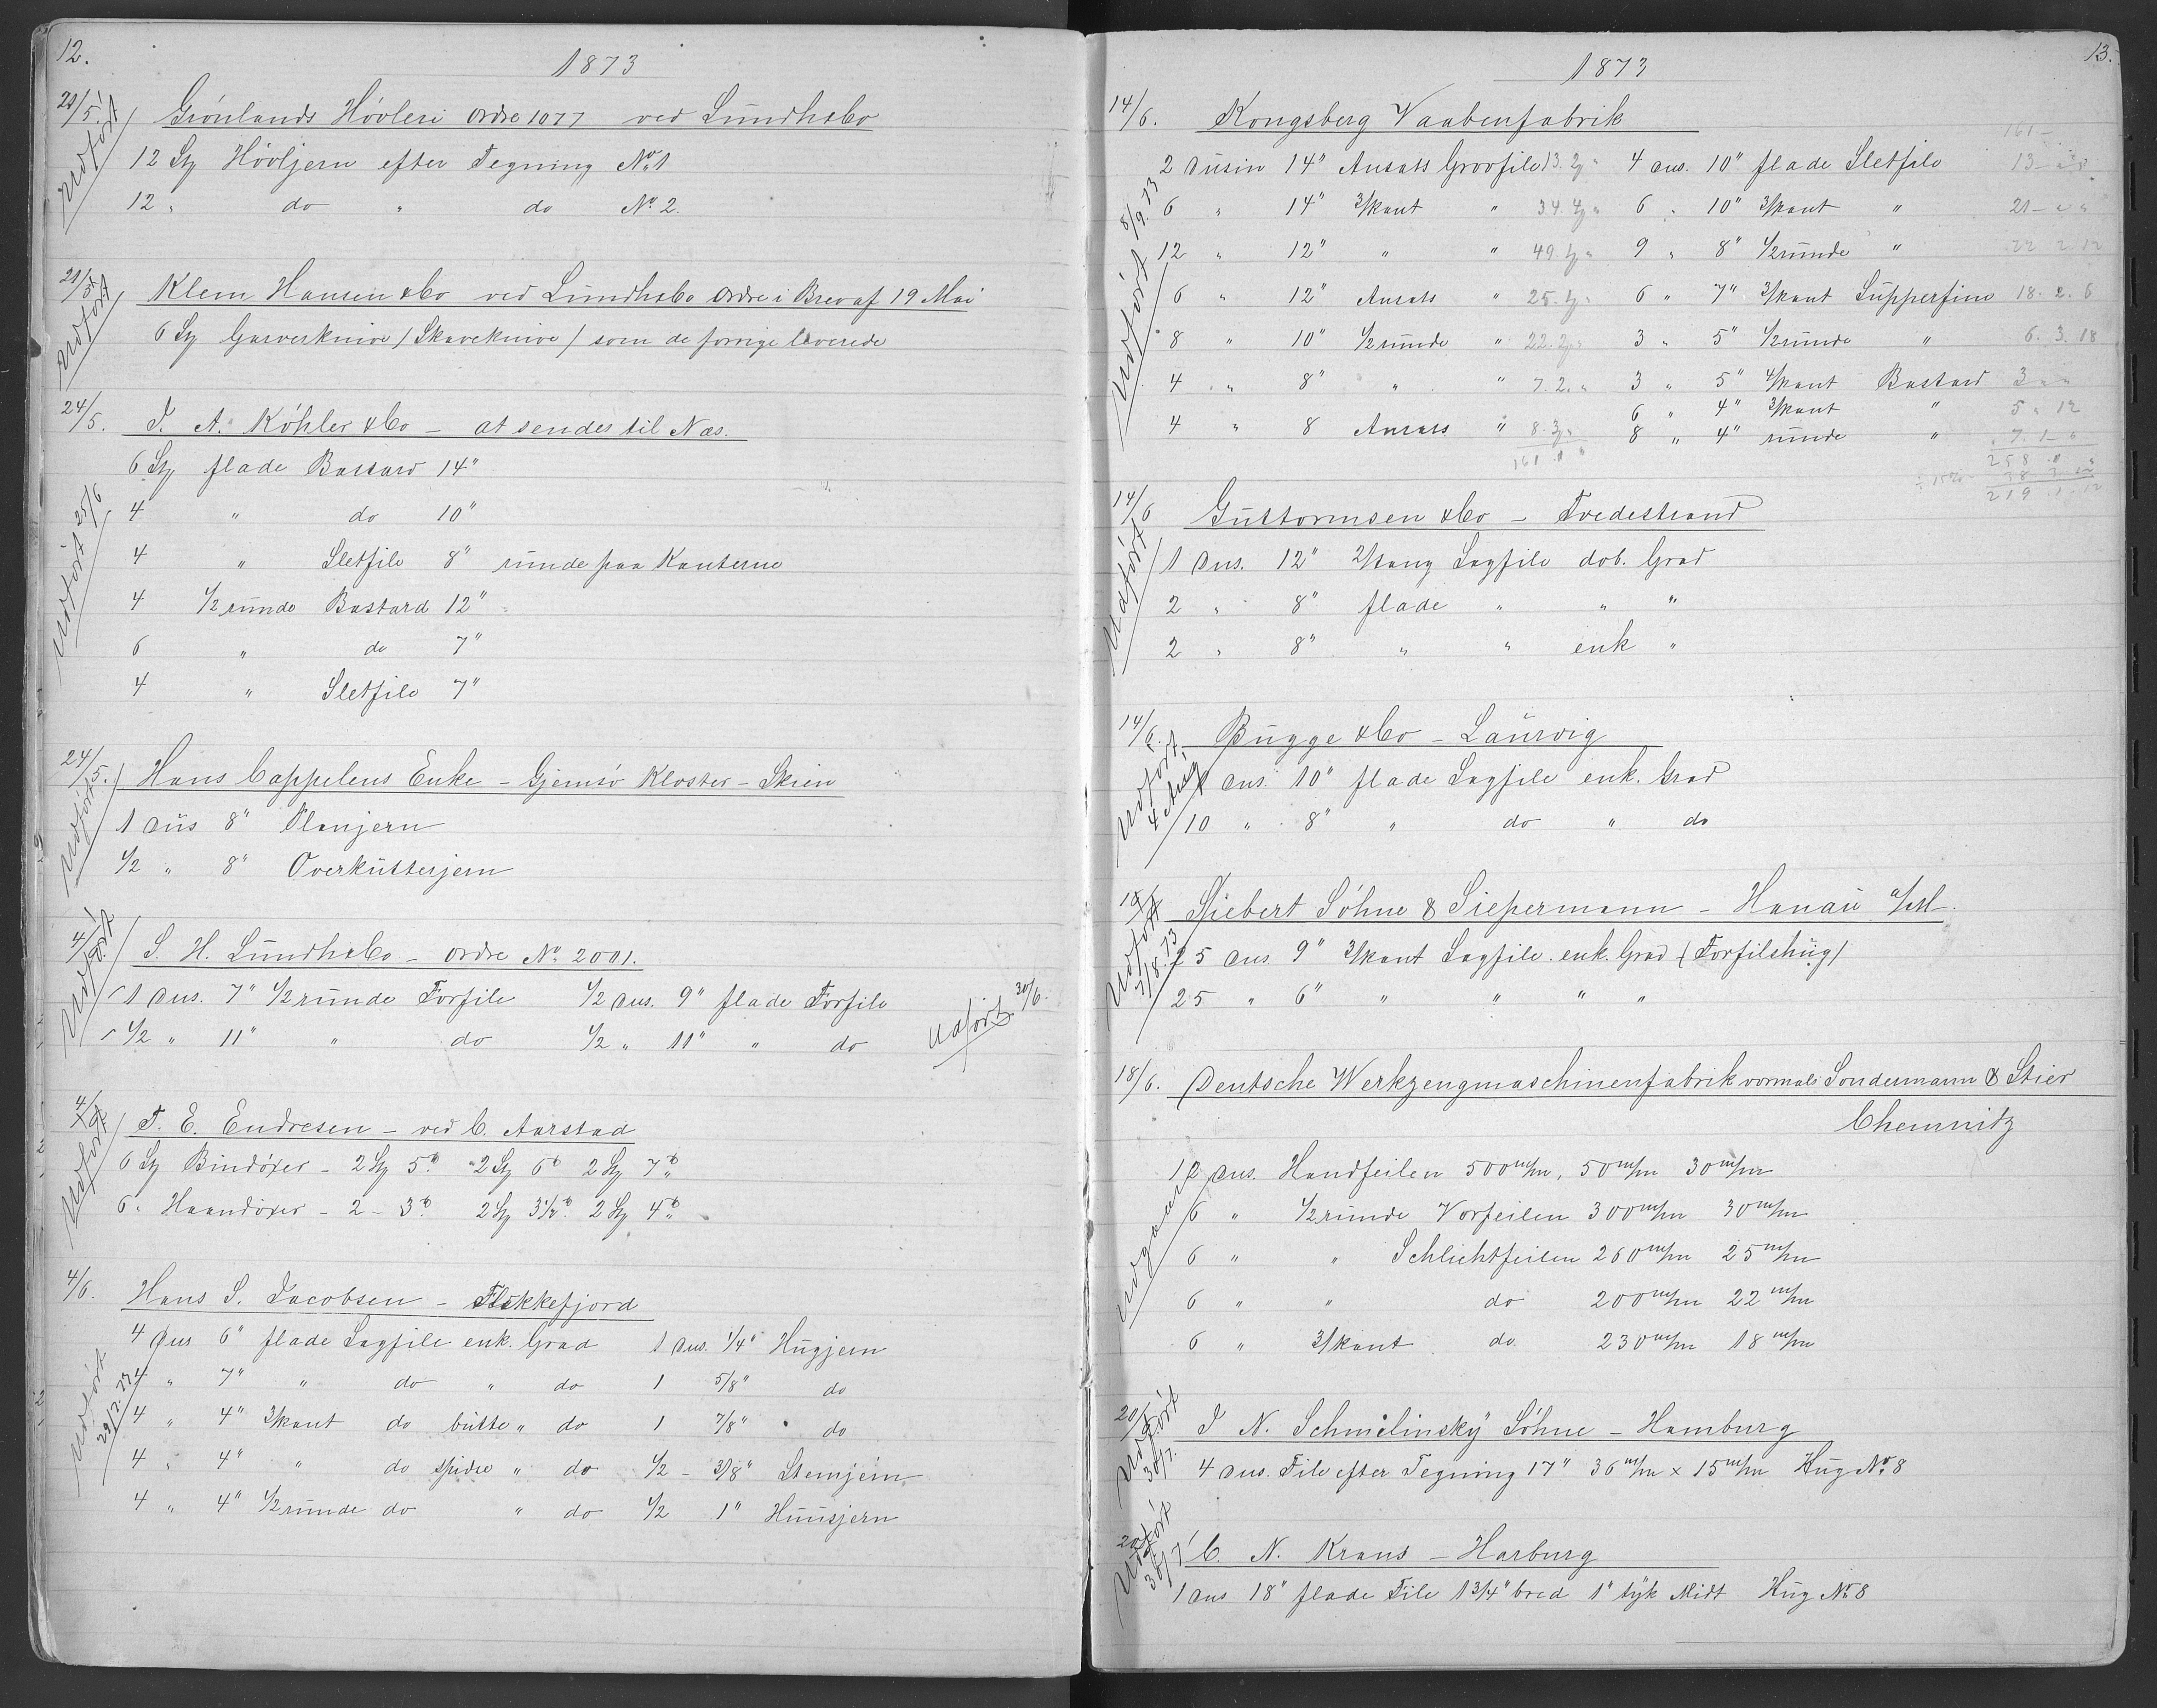 12.
1873
21/5. Grönlands Hövleri Ordre 1077 ved Lundh & Co
Udfört
12 St Hövljern efter Tegning No 1
12 " do " do No 2.
21/5 Klem Hansen & Co ved Lundh & Co Ordre i Brev af 19 Mai
Udfört
6 St Garverknive / Skaveknive / som de forrige leverede
24/5. J. A. Köhler & Co – at sendes til Næs.
Udfört 25/6
6 St flade Bastard 14"
4 " do 10"
4 " Sletfile 8" runde paa Kanterne
4 1/2 runde Bastard 12"
6 " do 7"
4 " Sletfile 7"
24/5. Hans Cappelens Enke – Gjemsö Kloster – Skien
Udfört
1 Dus 8" Planjern
1/2 " 8" Overkutterjern
4/6 S. H. Lundh & Co – Ordre No 2001.
Udfört
1 Dus. 7" 1/2 runde Forfile 1/2 Dus. 9" flade Forfile
1/2 " 11" " do 1/2 " 11" " do
Udfört 30/6.
4/6 T. E. Endresen – ved C. Aarstad
Udfört
6 St Bindöxer – 2 St 5 " 2 St 6 2 St 7
6 " Haandöxer – 2 – 3 2 St 3 1/2 2 St 4
4/6. Hans S. Jacobsen – Flekkefjord
Udfört
4 Dus 6" flade Sagfile enk. Grad 1 Dus. 1/4" Hugjern
4 " 7" " do " do 1 5/8" do
4 " 4" 3/kant do butte " do 1 7/8" do
4 " 4" " do spidse " do 1/2 – 3/8" Stemjern
4 " 4" 1/2 runde do " do 1/2 1" Huusjern
13.
1873
14/6. Kongsberg Vaabenfabrik
161 –
Udfört 8/9. 73
2 Dusin 14" Ansats Grovfile 13. 2 " 4 Dus. 10" flade Sletfile 13 – " "
6 " 14" 3/kant " 34. " 6 " 10" 3/kant " 21 – " "
12 " 12" " " 49. " 9 " 8" 1/2 runde " 22 2 12
6 " 12" Ansats " 25. " 6 " 7" 3/kant Supperfin 18. 2. 6
8 " 10" 1/2 runde " 22. 2 " 3 " 5" 1/2 runde " 6. 3. 18
4 " 8" " " 7. 2. " 3 " 5" 4/kant Bastard 3 " "
6 " 4" 3/kant " 5 " 12
4 " 8 Ansats " 8. 3 " 8 " 4" runde " 7. 1 – "
161 " "
258 " "
219. 1. 12
14/6 Guttormsen & Co – Tvedestrand
Udfört
1 Dus. 12" 2/tang Sagfile dob. Grad
2 " 8" flade " " "
2 " 8" " " enk "
14/6. Bugge & Co – Laurvig
Udfört 4 Aug
1 Dus. 10" flade Sagfile enk. Grad
10 " 8" " do " do
Siebert Söhne & Siepermann – Hanau a/M.
Udfört 7/8. 73
25 Dus. 9" 3/kant Sagfile enk. Grad (Forfilshug)
25 " 6" " " " "
18/6. Deutsche Werkzeugmaschinenfabrik vormals Sondermann & Stier
Chemnitz
12 Dus. Handfeilen 500 m/m, 50 m/m 30 m/m
6 " 1/2 runde Vorfeilen 300 m/m 30 m/m
6 " " Schlichtfeilen 260 m/m 25 m/m
6 " " do 200 m/m 22 m/m
6 " 3/kant do 230 m/m 18 m/m
20/6 J. N. Schmilinsky Söhne – Hamburg
Udfört 30/7.
4 Dus. File efter Tegning 17" 36 m/m x 15 m/m Hug No 8
20/6 C. N. Kraus – Harburg
Udfört 30/7
1 Dus 18" flade File 1 3/4" bred 1" tyk Midt Hug No 8